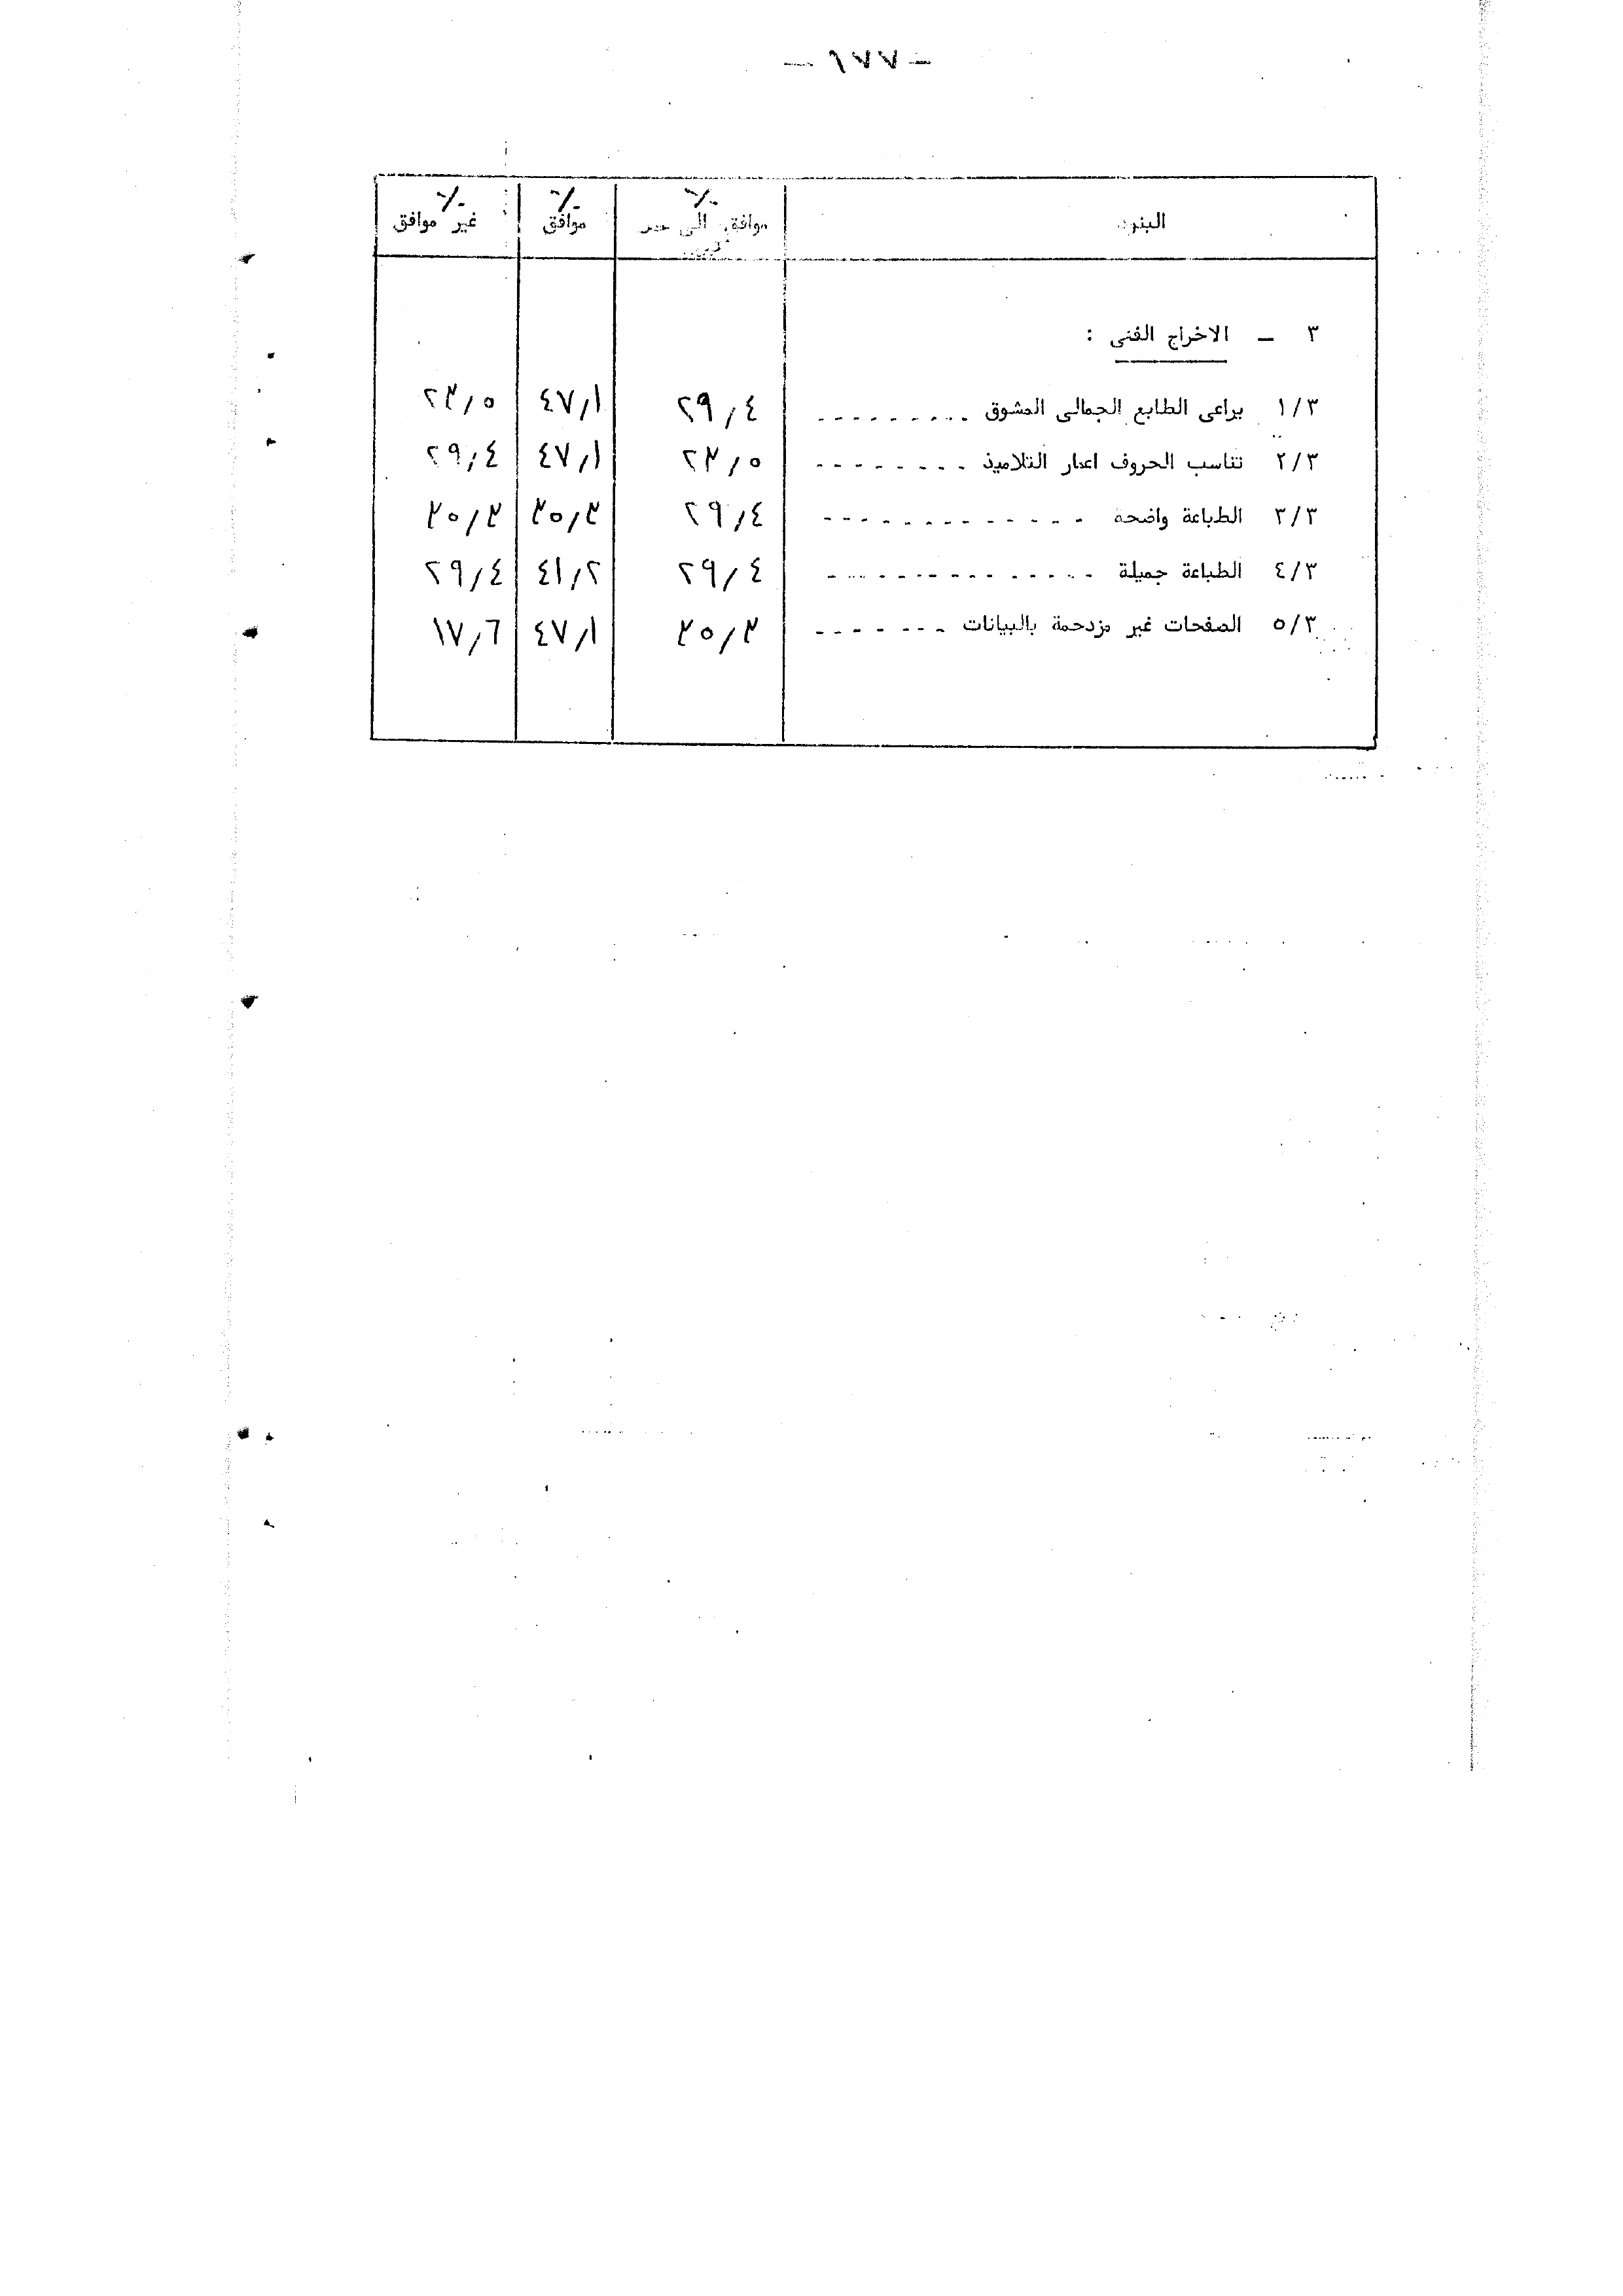 - ١٧٧ -
البنود ٪ موافق الى حد ٪ موافق ٪ غير موافق
٣ - الاخراج الفنى :
١/٣ يراعى الطابع الجمالى المشوق --------- ٢٩,٤ ٤٧,١ ٢٣,٥
٢/٣ تناسب الحروف اعمار التلاميذ -------- ٢٣,٥ ٤٧,١ ٢٩,٤
٣/٣ الطباعة واضحة -------------- ٢٩,٤ ٣٥,٣ ٣٥,٣
٤/٣ الطباعة جميلة -------------- ٢٩,٤ ٤١,٢ ٢٩,٤
٥/٣ الصفحات غير مزدحمة بالبيانات ------- ٣٥,٣ ٤٧,١ ١٧,٦